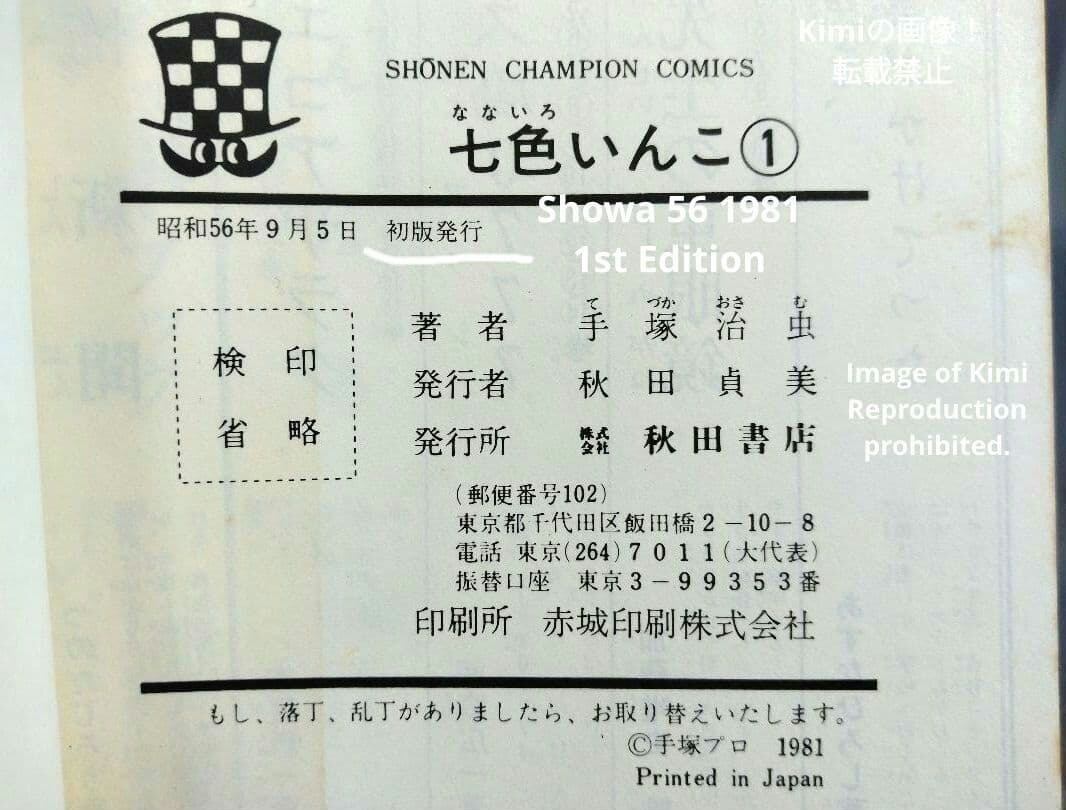 Kimiの画像！
転載禁止
SHŌNEN CHAMPION COMICS
なないろ
七色いんこ①
昭和56年9月5日 初版発行
Showa 56 1981
1st Edition
検印
省略
てづかおさむ
著者 手塚治虫
発行者 秋田貞美
発行所 株式会社 秋田書店
Image of Kimi
Reproduction
prohibited.
(郵便番号102)
東京都千代田区飯田橋2-10-8
電話 東京(264)7011(大代表)
振替口座 東京3-99353番
印刷所 赤城印刷株式会社
もし、落丁、乱丁がありましたら、お取り替えいたします。
©手塚プロ 1981
Printed in Japan